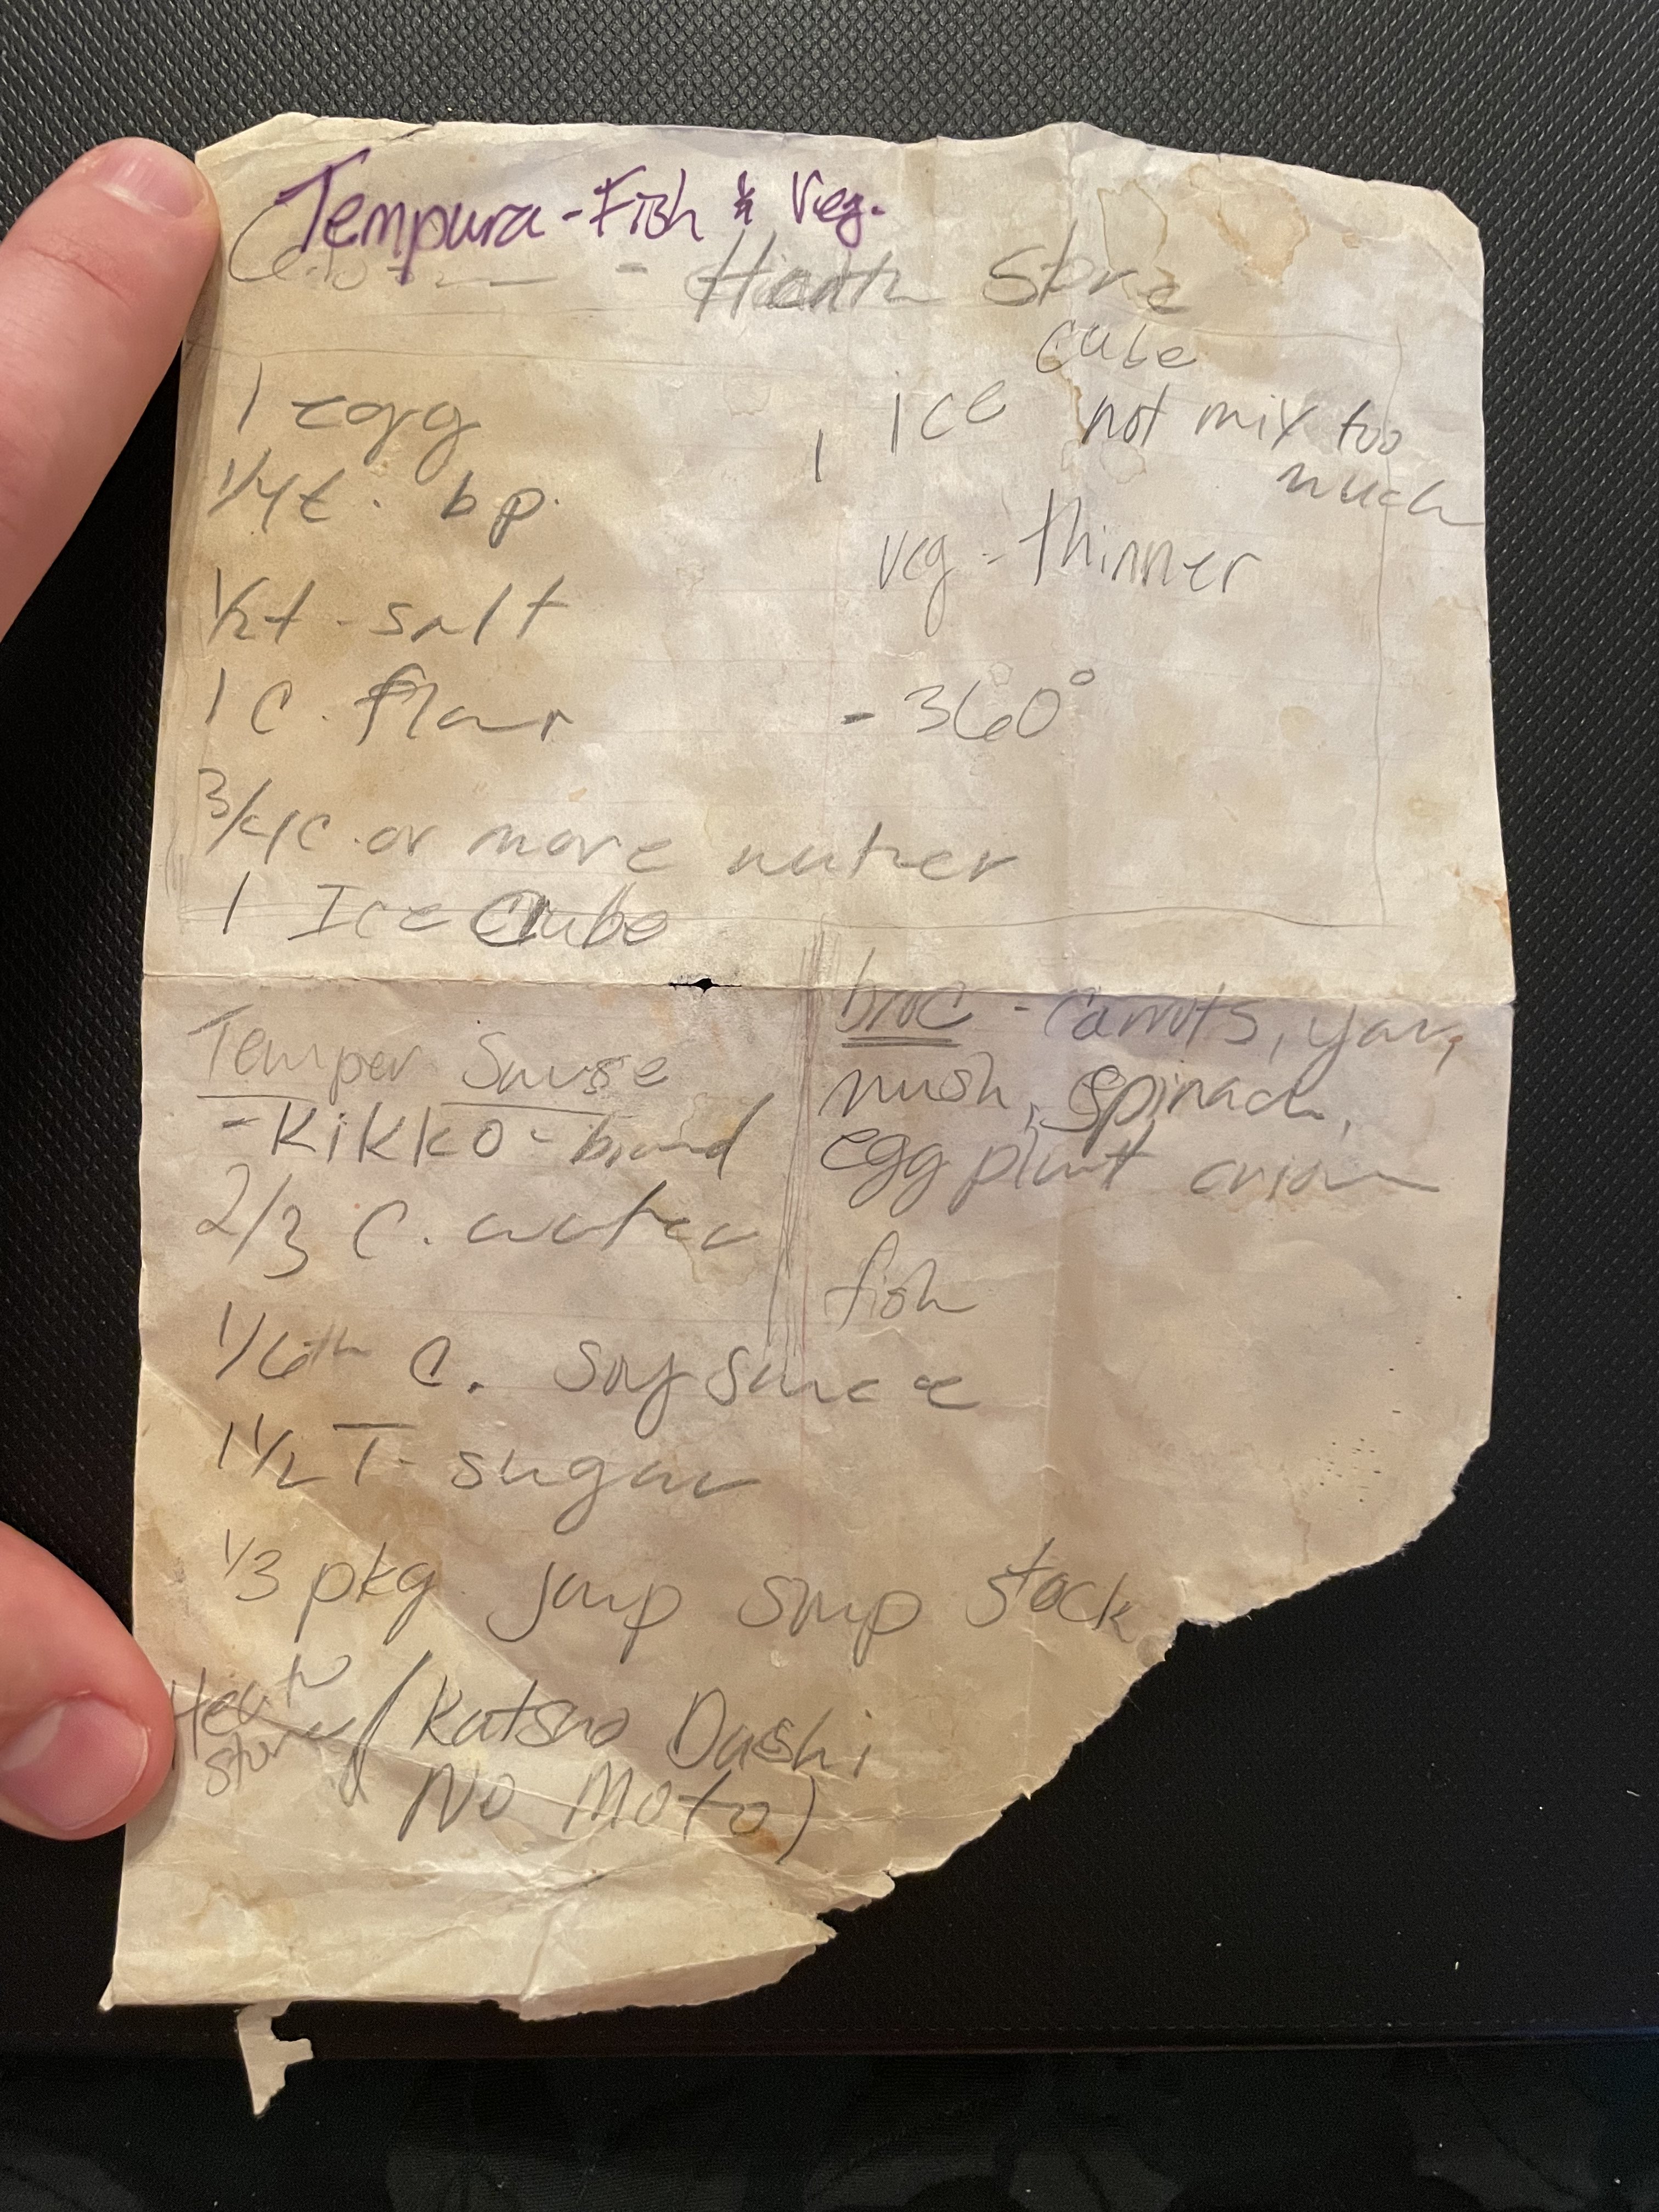 Tempura - Fish & Veg.
- Health Store
1 egg
1/4 t. bp.
1/2 t - salt
1 C. flour
3/4 C. or more water
1 Ice Cube
cube
1 ice not mix too
much
veg - thinner
- 360°
Temper Sause
- Kikko - brand
2/3 C. water
1/6th C. Soy Sauce
1 1/2 T - sugar
1/3 pkg. Jap Soup Stock
Health
store
(Katsuo Dashi
No Moto)
broc - carrots, yam,
mush, spinach,
eggplant onion
fish